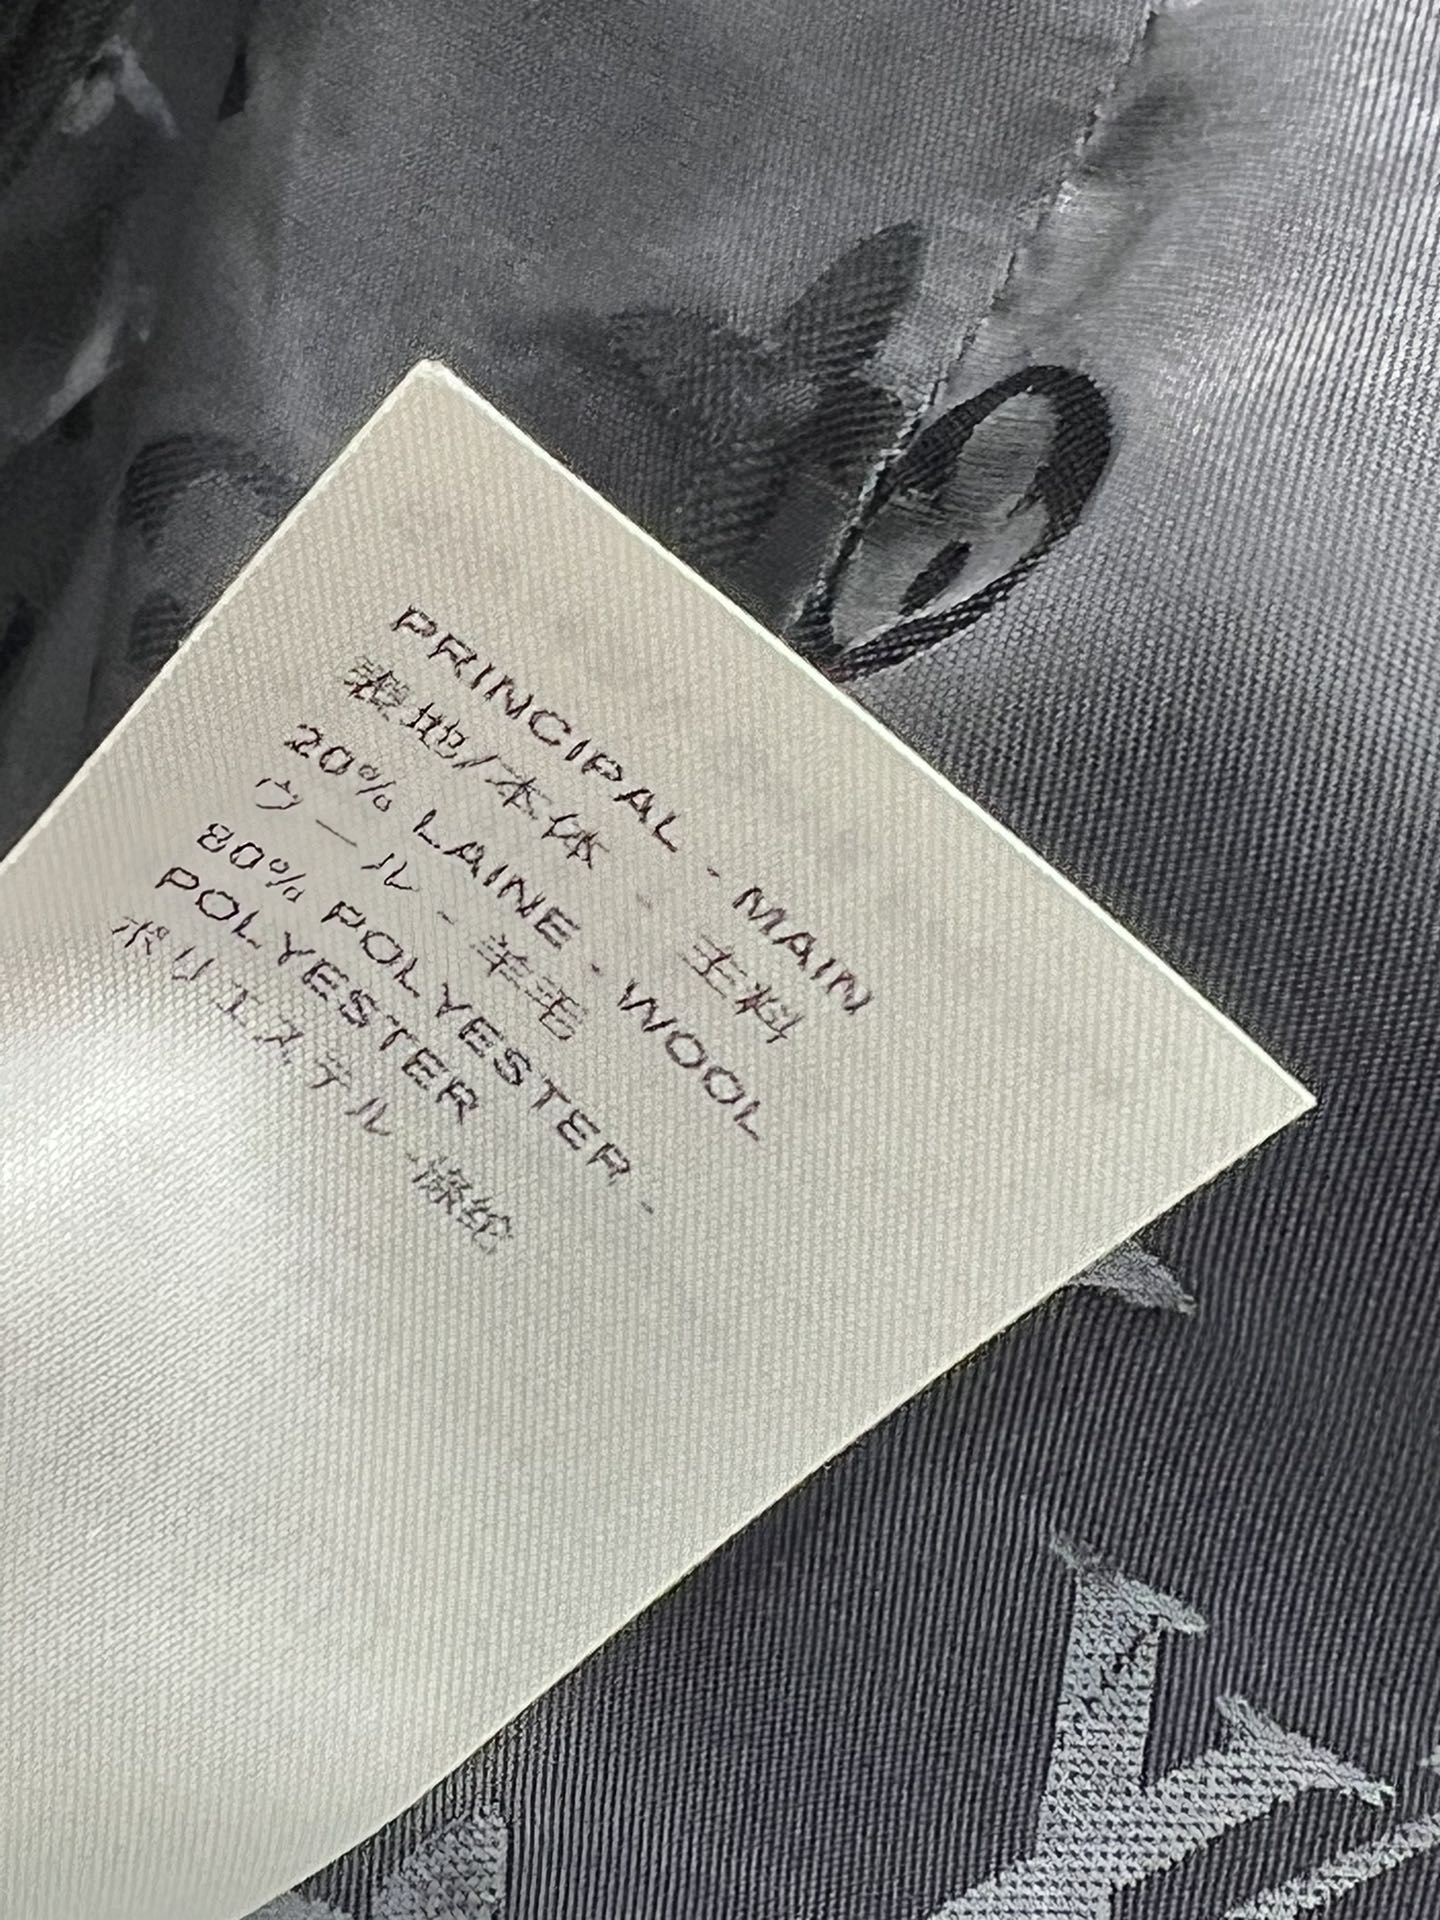 PRINCIPAL - MAIN
表地/本体 - 主料
20% LAINE - WOOL
ウール - 羊毛
80% POLYESTER -
POLYESTER
ポリエステル - 涤纶